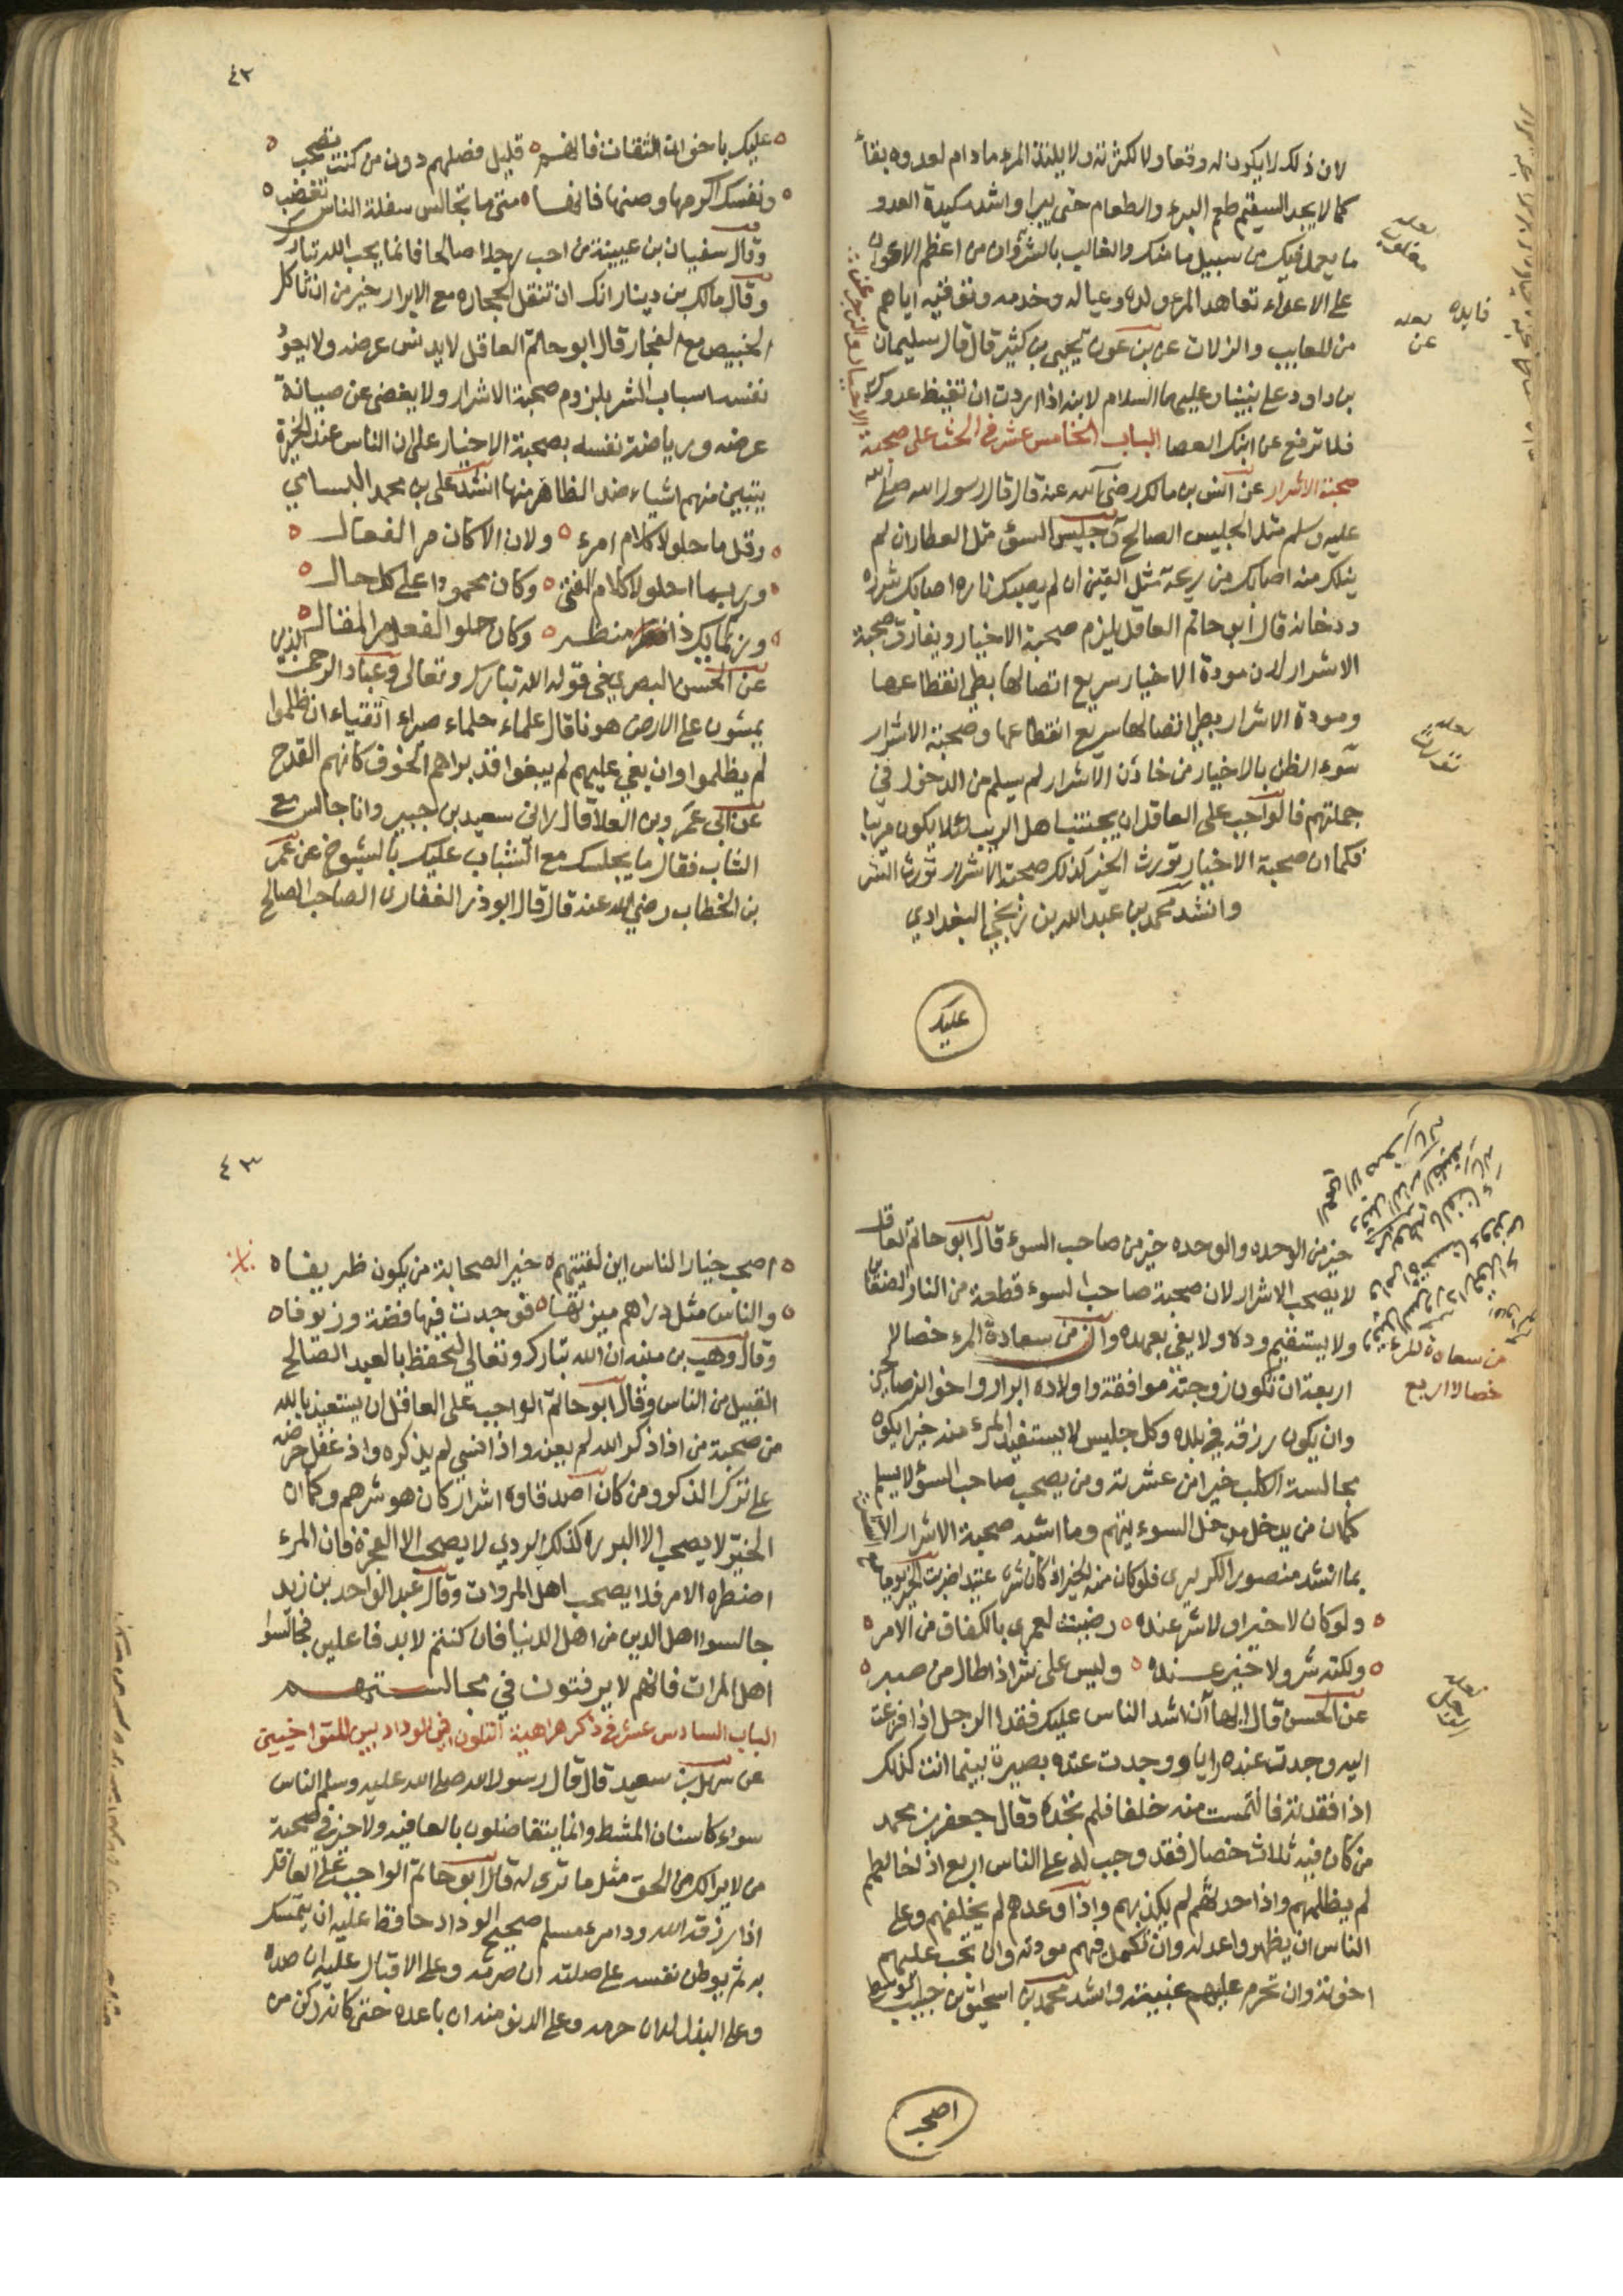 لان ذلك لا يكون له وقعا ولا لكثرته ولا يلتذ المرء ما دام لعدوه بقاء
كما لا يجد السقيم طعم البرء والطعام حتى يبرا واشد مكيدة العدو
ما يعمل فيك من سبيل ما منك والغالب بالشر وان من اعظم الاعوان
على الاعداء تعاهد المرء ولده وعياله وخدمه وتفقنه اياهم
من المعايب والزلات عن بن عون يحيى بن كثير قال قال سليمان
بن داود على نبينا وعليهما السلام لابنه اذا اردت ان تغيظ عدوك
فلا ترفع عن ابنك العصا الباب الخامس عشر في الحث على صحبة
الاخيار والزجر عن
صحبة الاشرار عن انس بن مالك رضي الله عنه قال قال رسول الله صلى الله
عليه وسلم مثل الجليس الصالح وجليس السوء مثل العطار ان لم
ينلك منه اصابك من ريحه مثل القين ان لم يصبك ناره اصابك شرره
ودخانه قال ابو حاتم العاقل يلزم صحبة الاخيار ويفارق صحبة
الاشرار لان مودة الاخيار سريع اتصالها بطي انقطاعها
ومودة الاشرار بطي اتصالها سريع انقطاعها وصحبة الاشرار
سوء الظن بالاخيار من خادن الاشرار لم يسلم من الدخول في
جملتهم فالواجب على العاقل ان يجتنب اهل الريب لئلا يكون مريبا
فكما ان صحبة الاخيار تورث الخير كذلك صحبة الاشرار تورث الشر
وانشد محمد بن عبد الله بن زنجي البغدادي
عليك
فايده
لعله
عن
لعله
٤٢
عليك باخوان الثقات فانهم قليل فصلهم دون من كنت تصحب
ونفسك اكرمها وصنها فانها متى ما تجالس سفلة الناس تغضب
وقال سفيان بن عيينة من احب رجلا صالحا فانما يحب الله تبارك
وقال مالك بن دينار انك ان تنقل الحجاره مع الابرار خير من ان تاكل
الخبيص مع الفجار قال ابو حاتم العاقل لا يدنس عرضه ولا يعود
نفسه اسباب الشر بلزوم صحبة الاشرار ولا يغضى عن صيانة
عرضه ورياضة نفسه بصحبة الاخيار على ان الناس عند الخبرة
يتبين منهم اشياء ضد الظاهر منها انشد على بن محمد البسامي
وقل ما حلو لا كلام امرء ولان الا كان مر الفعال
وربما احلو لا كلام الفتى وكان محمودا على كل حال
وربما يك ذا منظر وكان حلو الفعل مر المقال
عن الحسن البصري في قوله الله تبارك وتعالى وعباد الرحمن الذين
يمشون على الارض هونا قال علماء حلماء صبراء اتقياء ان ظلموا
لم يظلموا وان بغي عليهم لم يبغوا قد براهم الخوف كانهم القدح
عن ابى عمرو بن العلا قال رانى سعيد بن جبير وانا جالس مع
الشاب فقال ما يجلسك مع الشباب عليك بالشيوخ عن عمر
بن الخطاب رضي الله عنه قال قال ابو ذر الغفارى الصاحب الصالح
خير من الوحده والوحده خير من صاحب السوء قال ابو حاتم العاقل
لا يصحب الاشرار لان صحبة صاحب السوء قطعة من النار
ولا يستقيم وده ولا يفي بعهده وان من سعادة المرء خصالا
اربعة ان تكون زوجته موافقة واولاده ابرار واخوانه صالحين
وان يكون رزقه في بلده وكل جليس لا يستفيد المرء منه خيرا يكون
مجالسة الكلب خيرا من عشرته ومن يصحب صاحب السؤ لا يسلم
كما ان من يدخل مدخل السوء يتهم وما اشبه صحبة الاشرار الا
بما انشد منصور الكريزى
ولو كان لا خيرا ولا شر عنده رضيت لعمرى بالكفاف من الامر
ولكنه شر ولا خير عنده وليس على شر اذا طال من صبر
عن الحسن قال ايها ان اشد الناس عليك فقدا الرجل اذا فزعت
اليه وجدت عنده رايا ووجدت عنده بصيرة بينما انت كذلك
اذا فقدته فالتمست منه خلفا فلم تجده وقال جعفر بن محمد
من كان فيه ثلاث خصال فقد وجب له على الناس اربع اذا خالطهم
لم يظلمهم واذا حدثهم لم يكذبهم واذا وعدهم لم يخلفهم وعلى
الناس ان يظهروا عدله وان تكمل فيهم مودته وان تجب عليهم
اخوته وان تحرم عليهم غيبته وانشد محمد بن اسحق بن حبيب الواسطى
اصحب
من سعادة المرء
خصالا اربع
٤٣
اصحب خيار الناس اين لقيتهم خير الصحابة من يكون ظريفاه
والناس مثل دراهم ميزتها فوجدت فيها فضة وزيوفاه
وقال وهب بن منبه ان الله تبارك وتعالى ليحفظ بالعبد الصالح
القبيل من الناس وقال ابو حاتم الواجب على العاقل ان يستعيذ بالله
من صحبة من اذا ذكر الله لم يعنه واذا نسي لم يذكره واذ غفل حرضه
على ترك الذكر ومن كان اصدقاوه اشرار كان هو شرهم وكما ان
الخير لا يصحب الا البرره كذلك الردي لا يصحب الا الفجرة فان المرء
اضطره الامر فلا يصحب اهل المروات وقال عبد الواحد بن زيد
جالسوا اهل الدين من اهل الدنيا فان كنتم لا بد فاعلين فجالسوا
اهل المرات فانهم لا يرفثون في مجالستهم
الباب السادس عشر في ذكر كراهية التلون في الوداد بين المتواخيين
عن سهل بن سعيد قال قال رسول الله صلى الله عليه وسلم الناس
سواء كاسنان المشط وانما يتفاضلون بالعافيه ولا خير في صحبة
من لا يرا لك من الحق مثل ما ترى له قال ابو حاتم الواجب على العاقل
اذا رزقه الله ود امرء مسلم صحيح الوداد حافظ عليه ان يتمسك
به ثم يوطن نفسه على صلته ان صرمه وعلى الاقبال عليه ان صده
وعلى البذل له ان حرمه وعلى الدنو منه ان باعده حتى كانه ركن من